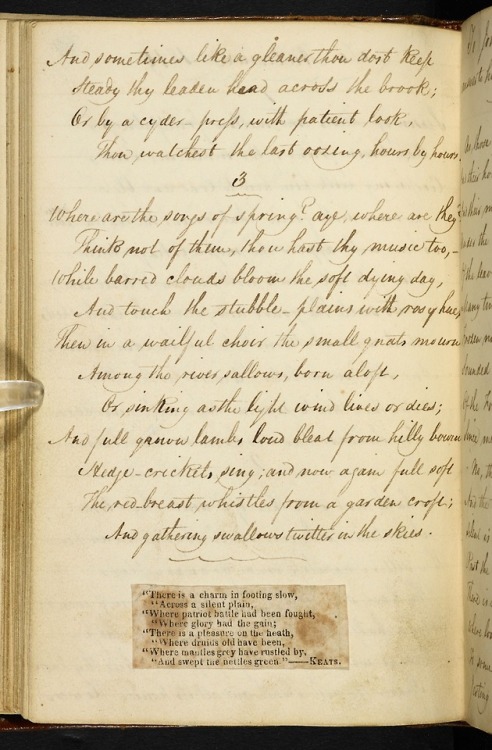 And sometimes like a gleaner thou dost keep
Steady thy leaden head across the brook;
Or by a cyder-press, with patient look,
Thou watchest the last oozing, hours by hours.
3
Where are the songs of spring? aye, where are they?
Think not of them, thou hast thy music too,-
While barred clouds bloom the soft dying day,
And touch the stubble-plains with rosy hue,
Then in a wailful choir the small gnats mourn
Among the river sallows, born aloft,
Or sinking as the light wind lives or dies;
And full grown lambs loud bleat from hilly bourn
Hedge-crickets sing; and now again full soft
The red-breast whistles from a garden croft;
And gathering swallows twitter in the skies.
"There is a charm in footing slow,
"Across a silent plain,
"Where patriot battle had been fought,
"Where glory had the gain;
"There is a pleasure on the heath,
"Where druids old have been,
"Where mantles grey have rustled by,
"And swept the nettles green."——KEATS.